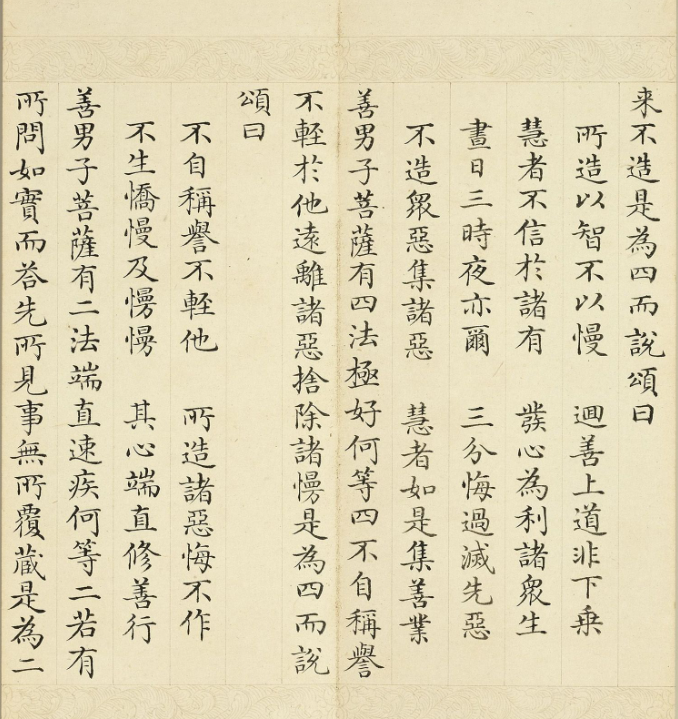 来不造是為四而說頌曰
所造以智不以慢　迴善上道非下乗
慧者不信於諸有　發心為利諸眾生
晝日三時夜亦爾　三分悔過滅先惡
不造眾惡集諸惡　慧者如是集善業
善男子菩薩有四法極好何等四不自稱譽
不輊於他遠離諸惡捨除諸慢是為四而說
頌曰
不自稱譽不輊他　所造諸惡悔不作
不生憍慢及慢慢　其心端直修善行
善男子菩薩有二法端直速疾何等二若有
所問如實而荅先所見事無所覆蔵是為二